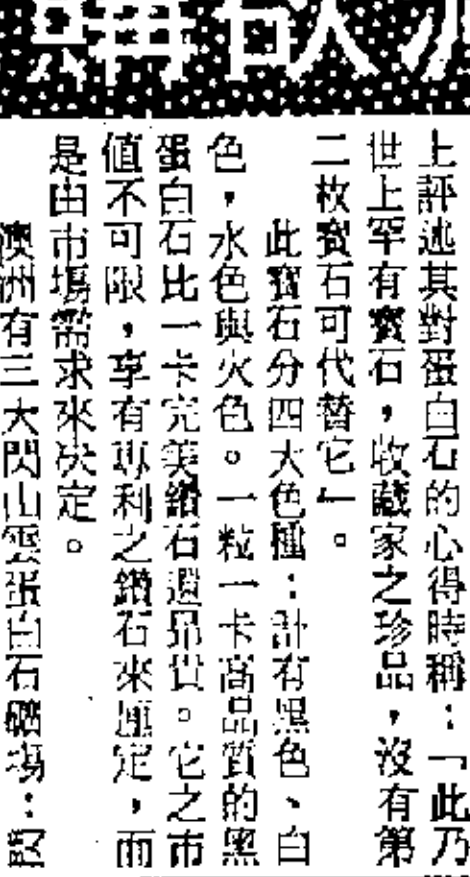 上評述其對蛋白石的心得時稱：「此乃
世上罕有寶石，收藏家之珍品，沒有第
二枚寶石可代替它」。
此寶石分四大色種：計有黑色、白
色，水色與火色。一粒一卡高品質的黑
蛋白石比一卡完美鑽石還昂貴。它之市
值不可限，享有專利之鑽石來厘定，而
是由市場需求來決定。
澳洲有三大閃山雲蛋白石礦場：閃